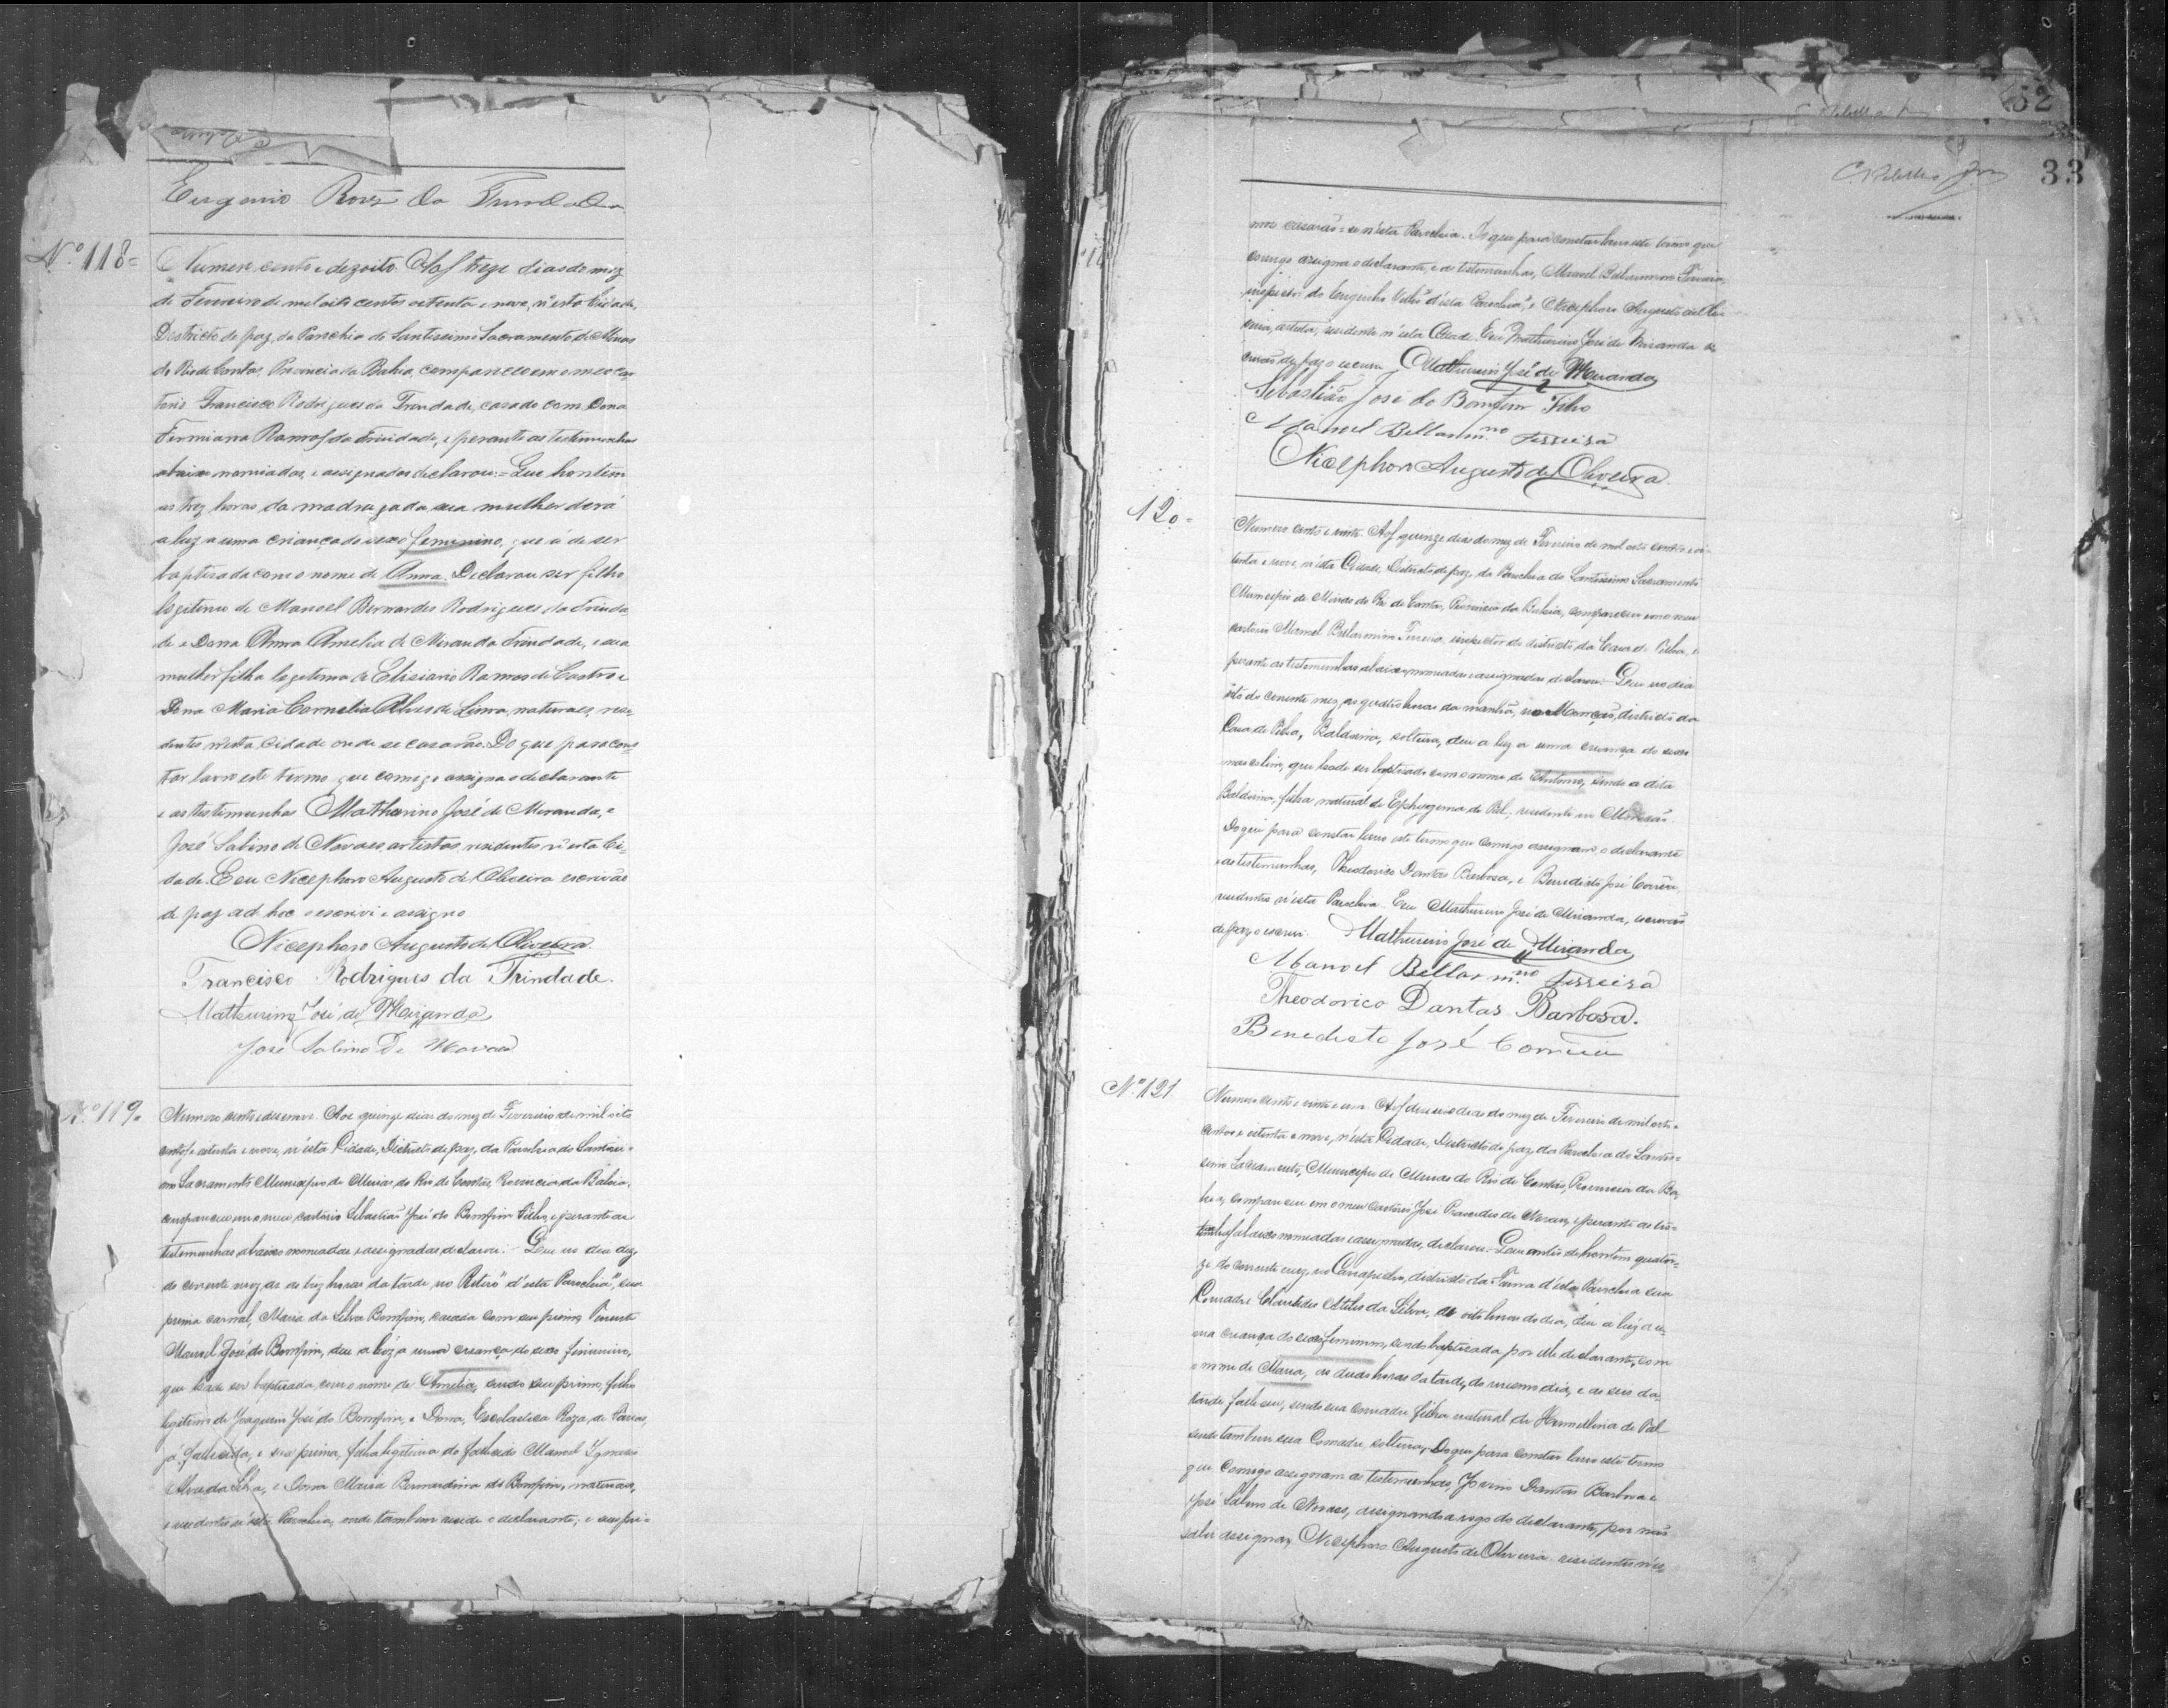 Eugenio Roiz da Trindade
Nº 118=
Numero cento e dezoito. Aos treze dias do mez
de Fevereiro de mil oito centos oitenta e nove, n'esta Cidade,
Districto de paz, da Parochia do Santissimo Sacramento de Minas
do Rio de Contas, Provincia da Bahia, compareceo em o meo car
torio Francisco Rodrigues da Trindade, casado com Dona
Firmiana Ramos da Trindade, e perante as testemunhas
abaixo nomiadas, e assignadas declarou:= Que hontem
as trez horas da madrugada sua mulher dera
a luz a uma criança do sexo feminino, que á de ser
baptisada com o nome de Anna. Declarou ser filho
legitimo de Manoel Bernardes Rodrigues da Trinda
de e Dona Anna Amelia de Miranda Trindade, e sua
mulher filha legitima de Elisiario Ramos de Castro e
Dona Maria Cornelia Alves de Lima, naturaes, resi
dentes nesta Cidade onde se casarão. Do que para cons
tar lavro este termo que comigo assigna o declarante
e as testimunhas Mathurino José de Miranda, e
José Sabino de Novaes, artistas, residentes n'esta Ci=
dade. E eu Nicephoro Augusto de Oliveira escrivão
de paz ad hoc o escrivi e assigno
Nicephoro Augusto de Oliveira.
Francisco Rodrigues da Trindade.
Mathurino José de Miranda
José Sabino De Novaes
Nº 119=
Numero cento e desenove. Aos quinze dias do mez de Fevereiro de mil oito
centos e oitenta e nove, n'esta Cidade, Districto de paz, da Parochia do Santissi=
mo Sacramento Municipio de Minas do Rio de Contas, Provincia da Bahia,
compareceu em o meu cartorio Sebastião José do Bomfim Filho, e perante as
testemunhas abaixo nomeadas e assignadas declarou: Que no dia dez
do corrente mez, as trez horas da tarde no Retiro "d'esta Parochia", sua
prima carnal, Maria da Silva Bomfim, casada com seu primo, Vicente
Manoel José do Bomfim, deu a luz a uma creança do sexo feminino,
que hade ser baptisada com o nome de Amelia, sendo seu primo, filho
legitimo de Joaquim José do Bomfim, e Dona, Escolastica Roza, de
já fallecida, e sua prima, filha legitima do fallecido Manoel Ignacio
Alves da Silva, e Dona Maria Bernardina do Bomfim, naturaes,
e residentes n'esta Parochia, onde tambem reside o declarante, e seus pri=
52
33
mos casarão-se n'esta Parochia. Do que para constar lavro este termo que
comigo assigna o declarante, e as testemunhas, Manoel Bellarmino Ferreira,
inspector do Engenho Velho "d'esta Parochia", e Nicephoro Augusto de Oli
veira, artista, residente n'esta Cidade. Eu Mathurino José de Miranda es
crivão de paz o escrevi. Mathurino José de Miranda
Sebastião José do Bomfim Filho
Manoel Bellarmno Ferreira
Nicephoro Augusto de Oliveira.
120=
Numero cento e vinte. Aos quinze dias do mez de Fevereiro de mil oito centos e oi
tenta e nove, n'esta Cidade, Districto de paz, da Parochia do Santissimo Sacramento
Municipio de Minas do Rio de Contas, Provincia da Bahia, compareceu em o meu
cartorio Manoel Belarmino Ferreira, inspector do districto da Casa de Telha, e
perante as testemunhas abaixo nomeadas e assignadas, declarou: Que no dia
oito do corrente mez, as quatro horas da manhã, districto da
Casa de Telha, Balduina, solteira, deu a luz a uma creança do sexo
masculino, que hade ser baptisado com o nome de Antonio, sendo a dita
Balduina, filha natural de Ephigenia de Tal, residente
Do que para constar lavro este termo que comigo assignam o declarante
e as testemunhas, Theodorico Dantas Barbosa, e Benedicto José Corrêa,
residentes n'esta Parochia. Eu Mathurino José de Miranda, escrivão
de paz o escrevi. Mathurino José de Miranda
Manoel Bellarmno Ferreira
Theodorico Dantas Barbosa.
Benedicto José Correia
Nº 121
Numero cento e vinte e um. Aos deseseis dias do mez de Fevereiro de mil oito=
centos e oitenta e nove, n'esta Cidade, Districto de paz da Parochia do Santis=
simo Sacramento, Municipio de Minas do Rio de Contas, Provincia da Ba
hia, compareceu em o meu cartorio José de Novaes, e perante as tes=
temunhas abaixo nomeadas e assignadas, declarou: Que antes de hontem quator=
ze do corrente mez, no districto da Furna d'esta Parochia sua
Comadre da Silva, as oito horas do dia, deu a luz a u=
ma creança do sexo feminino, sendo baptisada por elle declarante, com
o nome de Maria, as duas horas da tarde, do mesmo dia, e as seis da
tarde falleceu, sendo sua comadre filha natural de Hermelina de Tal
sendo tambem sua Comadre, solteira. Do que para constar lavro este termo
que comigo assignam as testemunhas, Jovino Dantas Barbosa e
José Sabino de Novaes, assignando a rogo do declarante, por não
saber assignar, Nicephoro Augusto de Oliveira residentes n'es